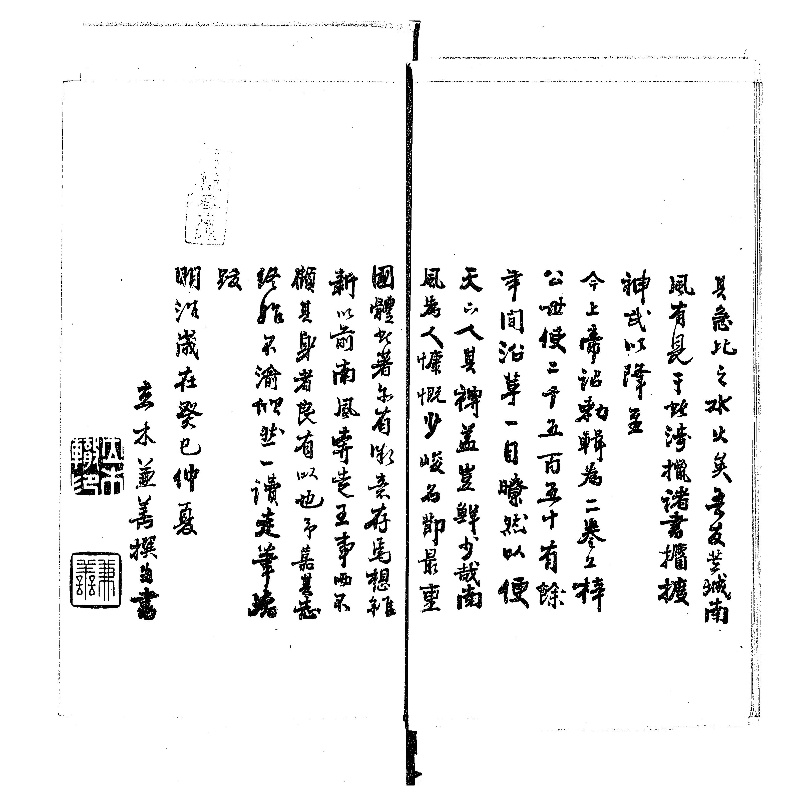 其急比之水火矣吾友茨城南
風有見于此涉猟諸書攟摭
神武以降至
今上帝詔勅輯為二巻上梓
公世使二千五百五十有餘
年間沿革一目瞭然以便
天下人其裨益豈鮮少哉南
風為人慷慨少峻名節最重
國體此著尓有微意存焉想維
新以前南風奔走王事而不
顧其身者良有以也予嘉其志
終始不渝一讀走筆
跋
明治歳在癸巳仲夏
木兼善撰自書
兼善